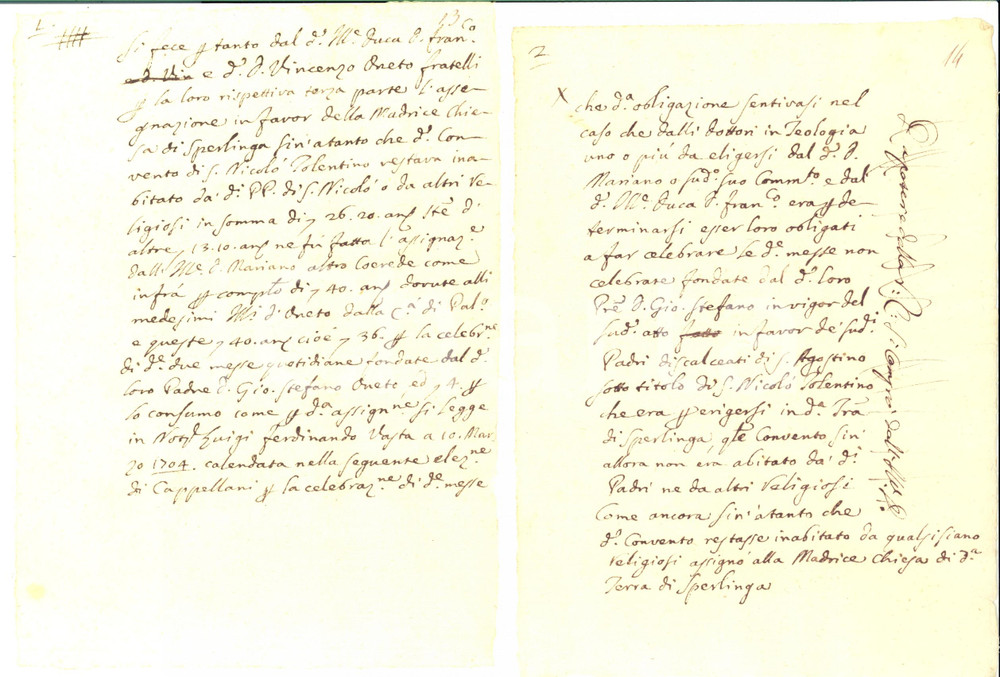 1.
13
Si fece p tanto dal d.º Ill.e Duca D. Fran.co
e D. Vin e d.º D. Vincenzo Oneto fratelli
p la loro rispettiva terza parte l'asse-
gnazione in favor della Madrice Chie-
sa di Sperlinga sin'a tanto che d.º Con-
vento di S. Nicolò Tolentino restava ina-
bitato da' d.i PP. di S. Nicolò o da altri Re-
ligiosi in somma di 26. 20. an
altre 13. 10. an ne fù fatta l'assignaz.e
dall' Ill.e D. Mariano altro Coerede come
infrà p compl.to di 40. an dovute alli
medesimi Ill.i d'Oneto dalla C.a di Pal.o
e queste 40. an cioè 36. p la celebr.ne
di d.e due messe quotidiane fondate dal d.º
loro Padre D. Gio. Stefano Oneto ed 4. p
lo consumo come p d.a assign.ne si legge
in Not.r Luigi Ferdinando Vasta a 10. Mar-
zo 1704. calendata nella seguente elez.ne
di Cappellani p la celebraz.ne di d.e messe
2
14
X che d.a obligazione sentivasi nel
caso che dalli dottori in Teologia
uno o più da eligersi dal d.º D.
Mariano o sud.º suo Comm.to e dal
d.º Ill.e Duca D. Fran.co era p de-
terminarsi esser loro obligati
a far celebrare le d.e messe non
celebrate fondate dal d.º loro
P.re D. Gio. Stefano in vigor del
sud.º atto fatto in favor de' sud.i
Padri discalceati di S. Agostino
sotto titolo di S. Nicolò Tolentino
che era p erigersi in d.a Tra
di Sperlinga, q.le Convento sin'
allora non era abitato da' d.i
Padri ne da altri Religiosi
Come ancora sin'a tanto che
d.º Convento restasse inabitato da qualsisiano
Religiosi assignò alla Madrice Chiesa di d.a
Terra di Sperlinga